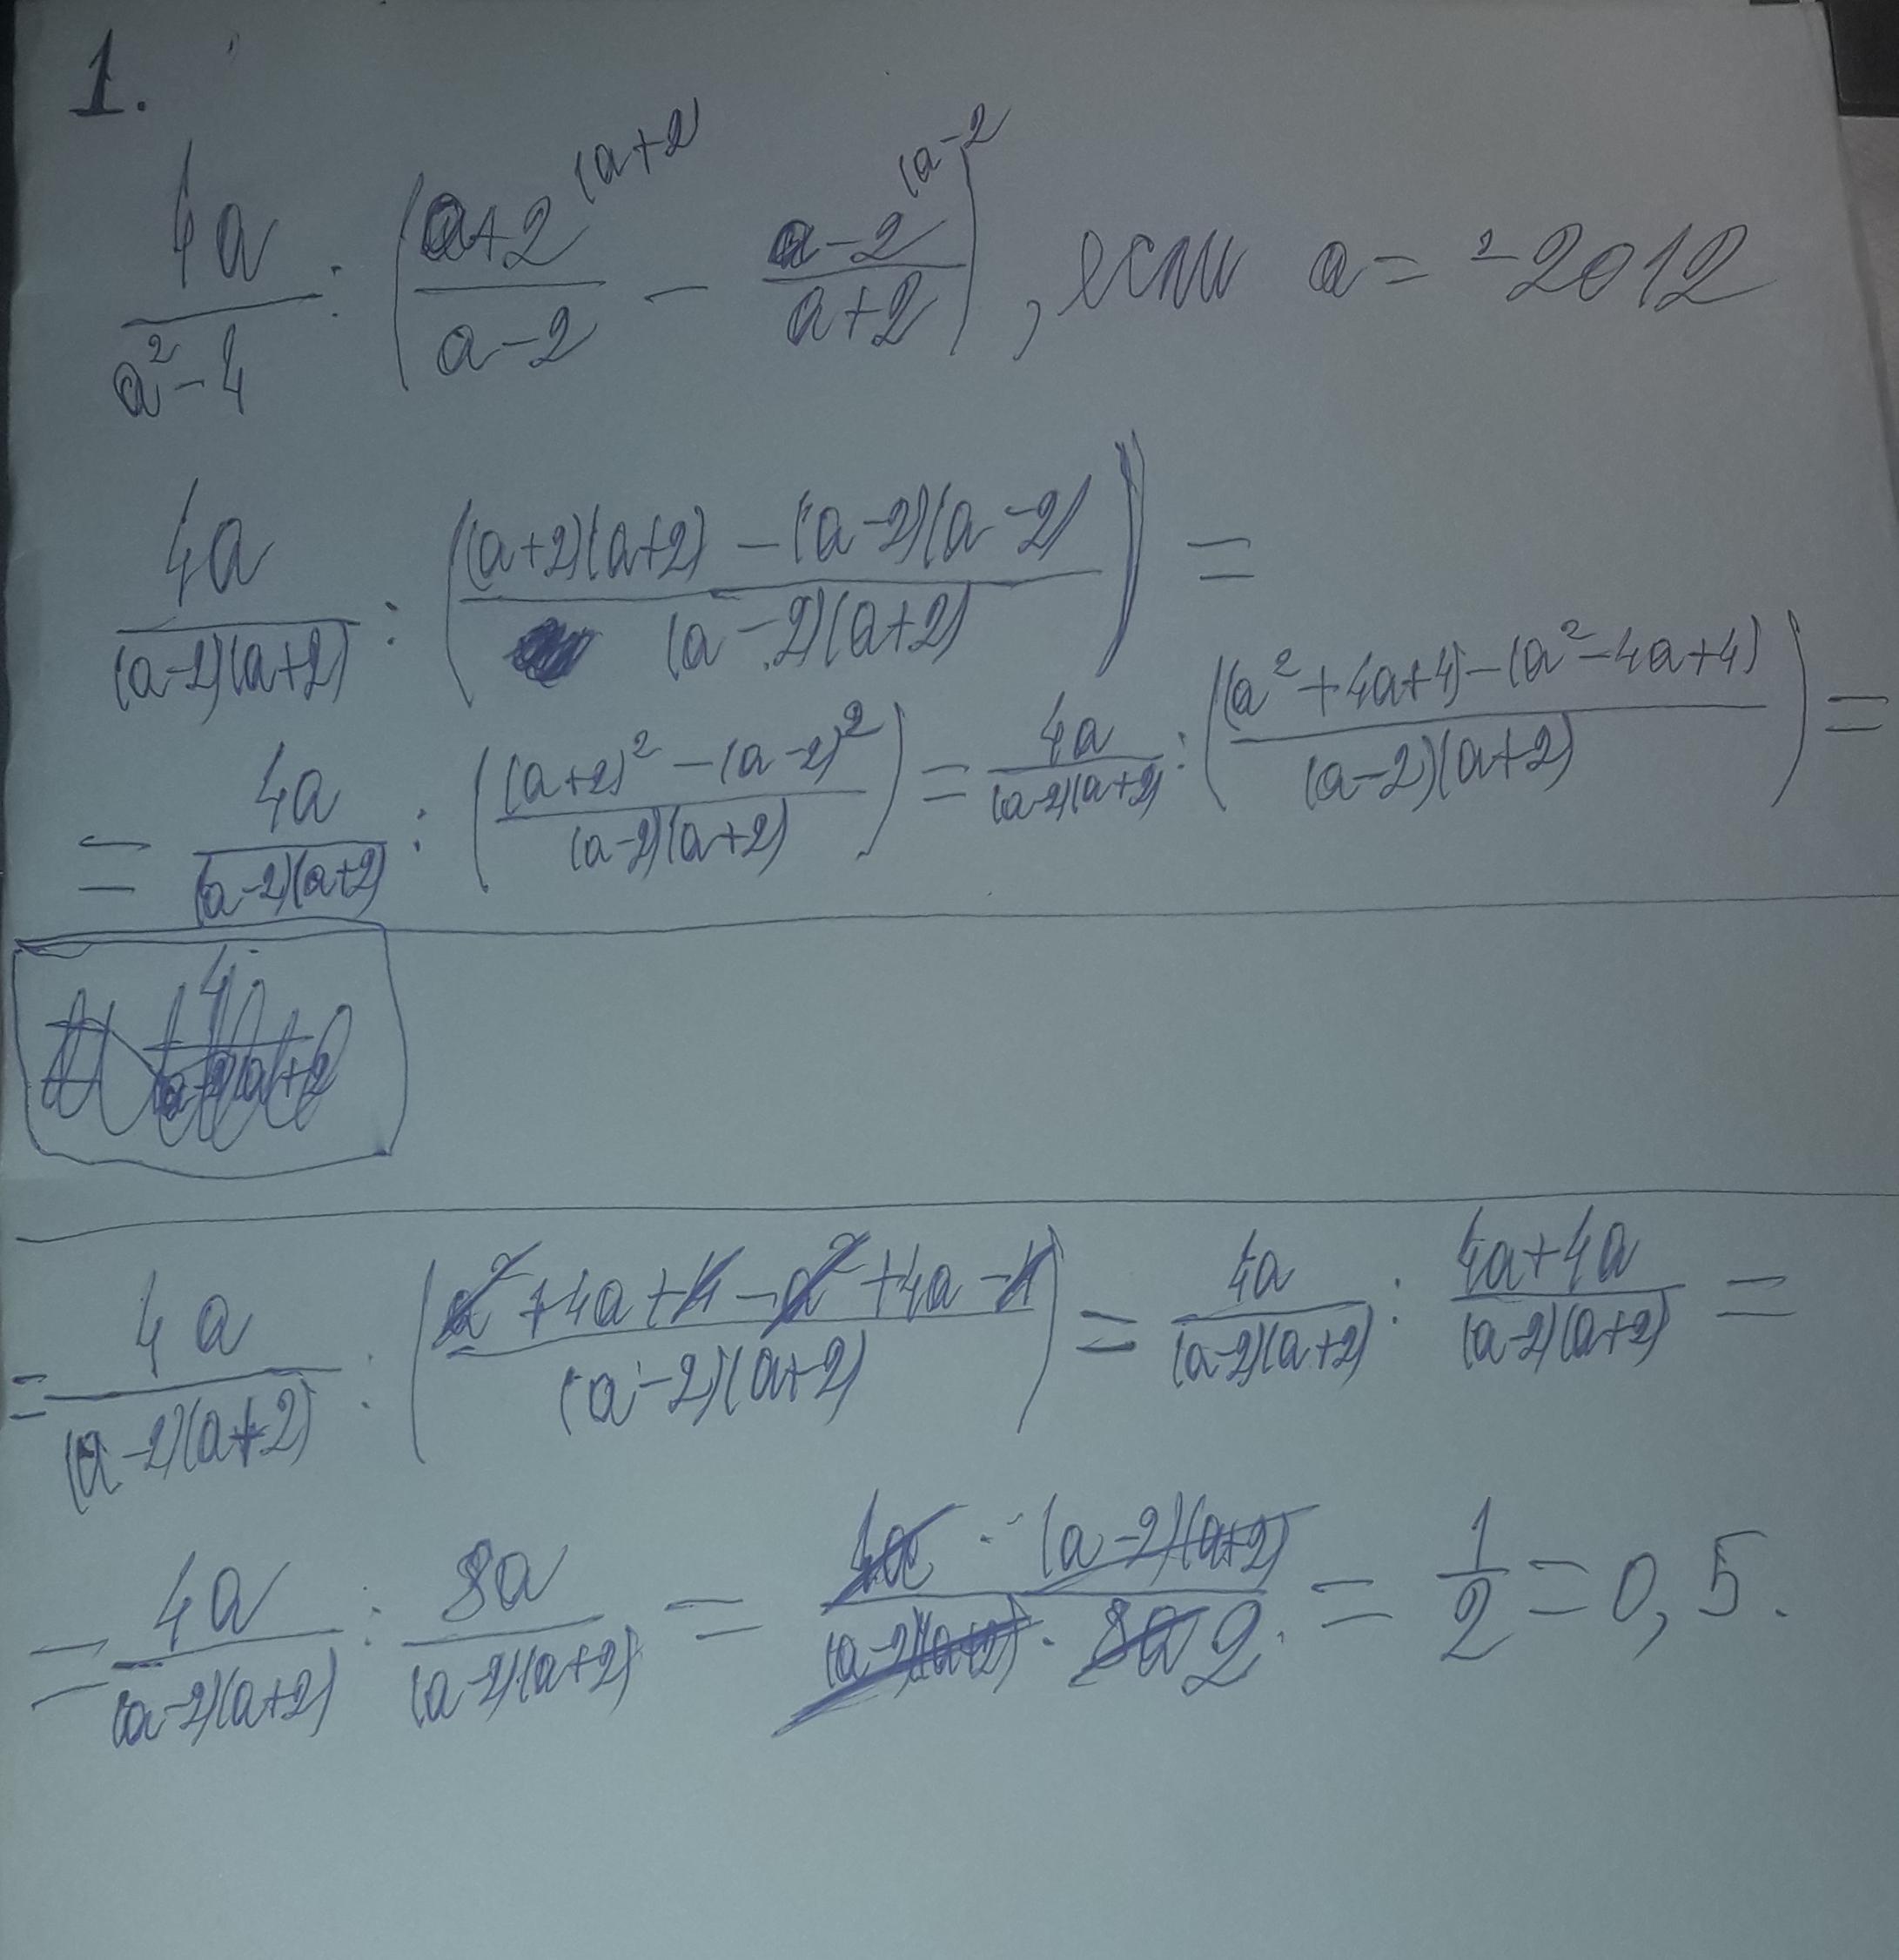 1.
4a/(a²-4) : ((a+2)/(a-2) - (a-2)/(a+2)), если a = -2012
(a+2) (a-2
4a/((a-2)(a+2)) : (((a+2)(a+2) - (a-2)(a-2))/((a-2)(a+2))) =
= 4a/((a-2)(a+2)) : (((a+2)² - (a-2)²)/((a-2)(a+2))) = 4a/((a-2)(a+2)) : (((a²+4a+4) - (a²-4a+4))/((a-2)(a+2))) =
= 4a/((a-2)(a+2)) : ((a²+4a+4-a²+4a-4)/((a-2)(a+2))) = 4a/((a-2)(a+2)) : (4a+4a)/((a-2)(a+2)) =
= 4a/((a-2)(a+2)) : 8a/((a-2)(a+2)) = (4a · (a-2)(a+2))/((a-2)(a+2) · 8a 2) = 1/2 = 0,5.